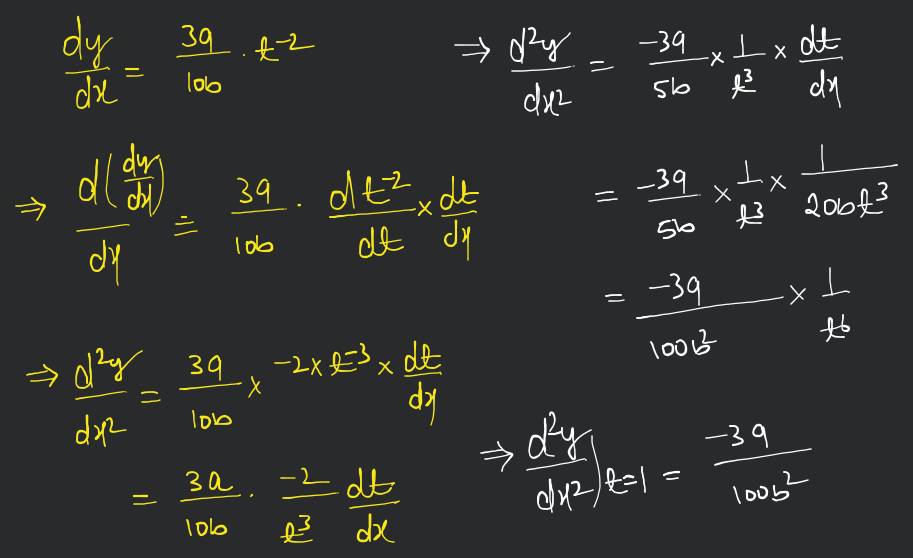 dy/dx = 3a/10b · t^-2
⇒ d(dy/dx)/dx = 3a/10b · dt^-2/dt × dt/dx
⇒ d²y/dx² = 3a/10b × -2 × t^-3 × dt/dx
= 3a/10b · -2/t³ dt/dx
⇒ d²y/dx² = -3a/5b × 1/t³ × dt/dx
= -3a/5b × 1/t³ × 1/20bt³
= -3a/100b² × 1/t⁶
⇒ d²y/dx²)t=1 = -3a/100b²